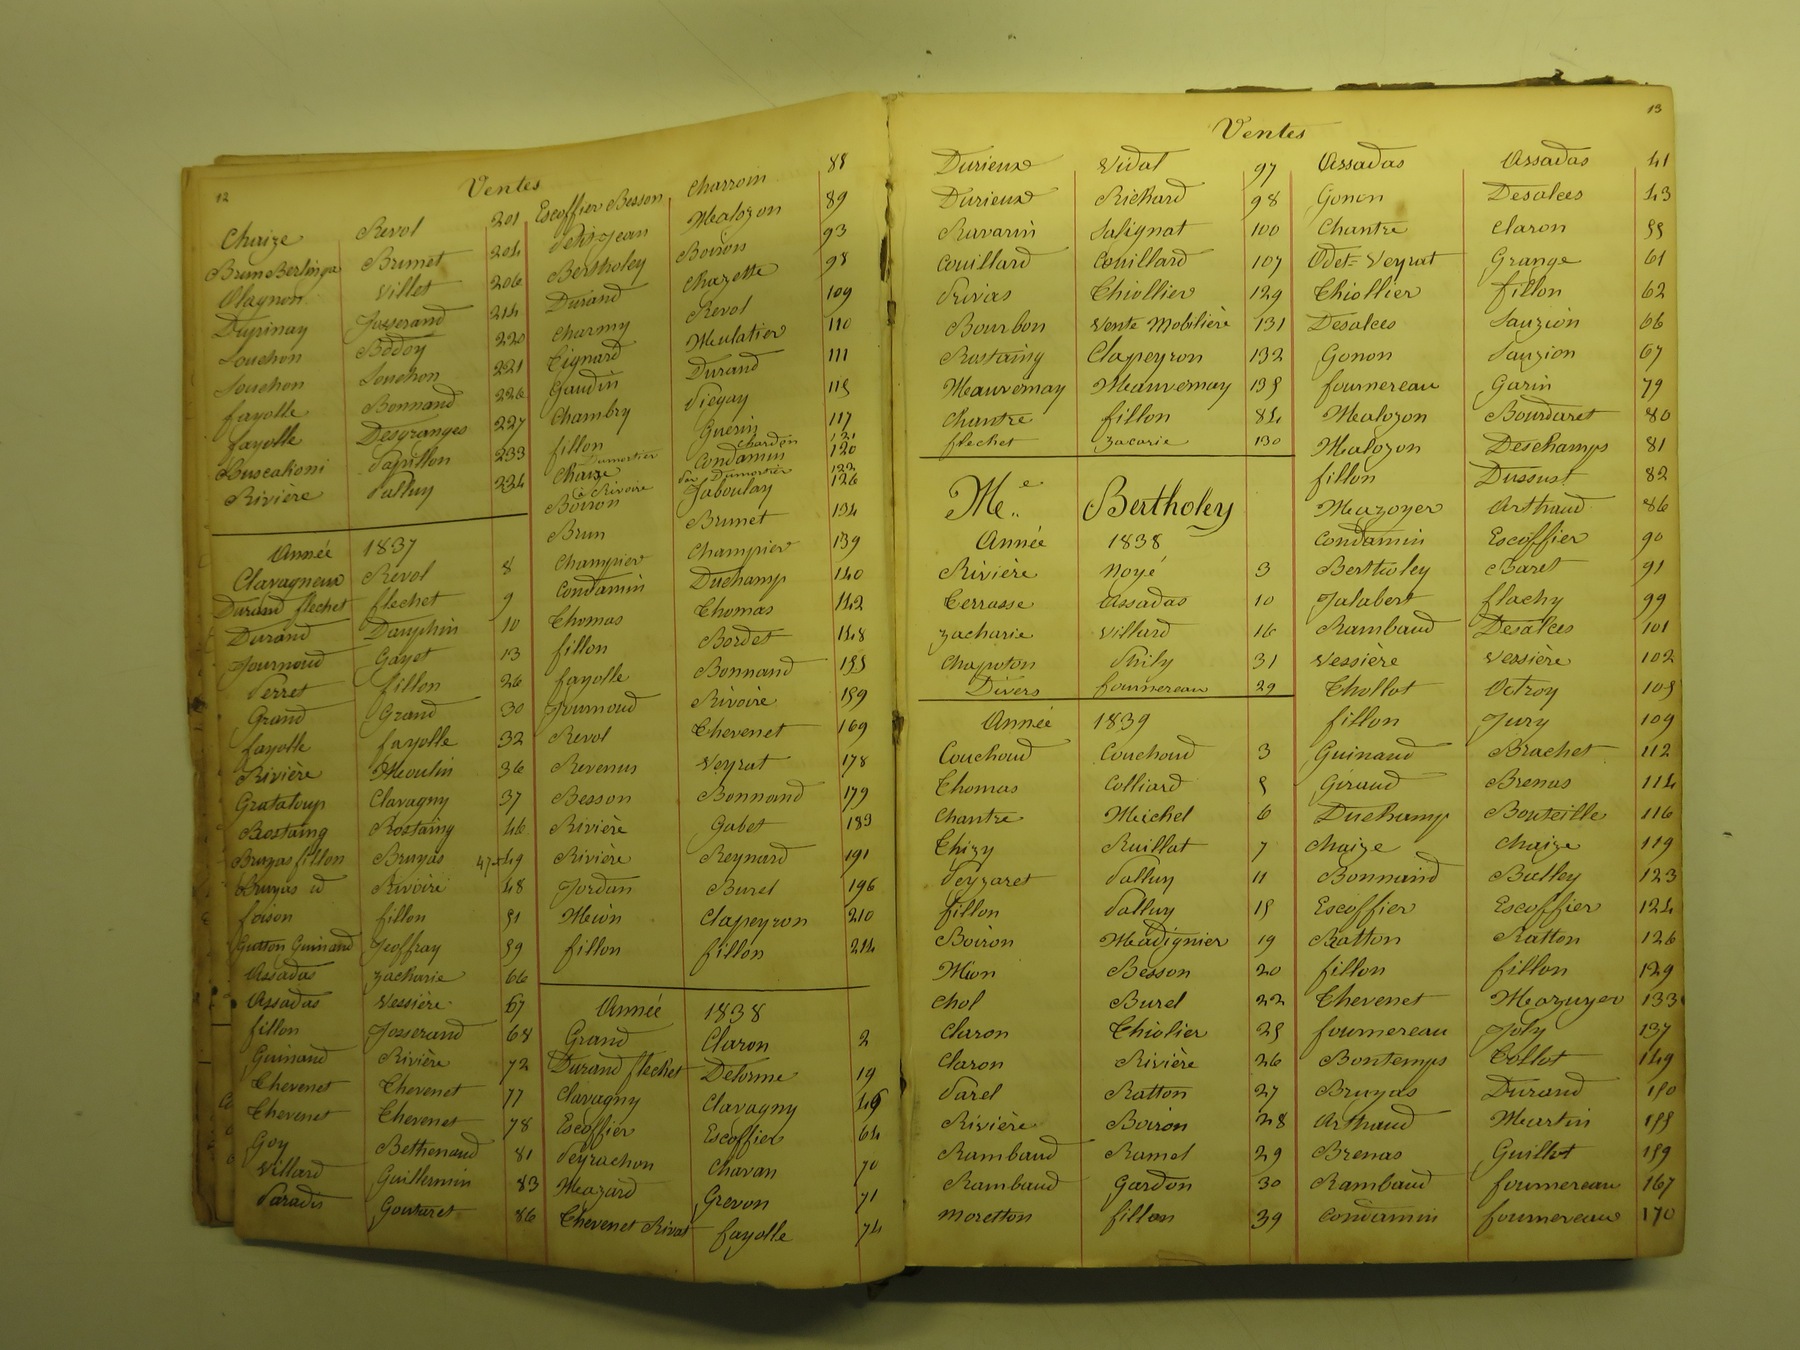 12
Ventes
Chaize Revol 201
Brun Berlingea Brunet 204
Olagnon Villet 206
Dupinay Josserand 214
Souchon Bodoy 220
Souchon Souchon 221
fayolle Bonnand 226
fayolle Desgranges 227
Buscalioni Papillon 233
Rivière Palluy 234
Année 1837
Clavagneux Revol 8
Durand flechet flechet 9
Durand Dauphin 10
Journoud Gayet 13
Perret fillon 26
Grand Grand 30
fayolle fayolle 32
Rivière Moulin 36
Grataloup Clavagny 37
Rostaing Rostaing 46
Bruyas fillon Bruyas 47-49
Bruyas id Rivoire 48
foison fillon 51
Gutton Guinand Jeoffray 59
Assadas Zacharie 66
Assadas Vessière 67
fillon Josserand 68
Guinand Rivière 72
Thevenet Thevenet 77
Thevenet Thevenet 78
Goy Bethenaud 81
Villard Guillermin 83
Paradis Goutaret 86
Escoffier Besson Charroin 88
Petit-Jean Malozon 89
Bertholey Boiron 93
Durand Chazette 98
Charmy Revol 109
Tignard Mulatier 110
Gaudin Durand 111
Chambry Piegay 115
fillon Guérin 117
Dumortier Chardin 121
Chaize Condamin 120
à Rivoire Par Dumortier 122
Boiron Jaboulay 126
Brun Brunet 134
Champier Champier 139
Condamin Duchamp 140
Thomas Thomas 142
fillon Bordet 148
fayolle Bonnand 155
Journoud Rivoire 159
Revol Thevenet 169
Revenus Veyrat 178
Besson Bonnand 179
Rivière Gabet 189
Rivière Reynard 191
Jordan Burel 196
Mion Clapeyron 210
fillon fillon 214
Année 1838
Grand Claron 2
Durand flechet Delorme 19
Clavagny Clavagny 46
Escoffier Escoffier 64
Peyrachon Chavan 70
Mazard Grevon 71
Thevenet Rivat fayolle 74
13
Ventes
Durieux Vidal 97
Durieux Richard 98
Ravarin Salignat 100
Couillard Couillard 107
Privas Thiollier 129
Bourbon Vente Mobilière 131
Rostaing Clapeyron 132
Mauvernay Mauvernay 135
Chantre fillon 84
flechet Zacarie 130
Me. Bertholey
Année 1838
Rivière Noyé 3
Terrasse Assadas 10
Zacharie Villard 16
Chapoton Phily 31
Divers fournereau 29
Année 1839
Couchoud Couchoud 3
Thomas Colliard 5
Chantre Michel 6
Thizy Ruillat 7
Peyzaret Palluy 11
fillon Palluy 15
Boiron Madignier 19
Mion Besson 20
Chol Burel 22
Claron Thiolier 25
Claron Rivière 26
Parel Ratton 27
Rivière Boiron 28
Rambaud Ramel 29
Rambaud Gardon 30
Moretton fillon 39
Assadas Assadas 41
Gonon Desalces 43
Chantre Claron 55
Odet-Veyrat Grange 61
Thiollier fillon 62
Desalces Sauzion 66
Gonon Sauzion 67
fournereau Garin 79
Malozon Bourdaret 80
Malozon Deschamps 81
fillon Dussust 82
Mazoyer Arthaud 86
Condamin Escoffier 90
Bertholey Baret 91
Jalabert flachy 99
Rambaud Desalces 101
Vessière Vessière 102
Thollot Octroy 105
fillon Jury 109
Guinand Brachet 112
Giraud Brenas 114
Duchamp Bouteille 116
Chaize Chaize 119
Bonnand Bulley 123
Escoffier Escoffier 124
Ratton Ratton 126
fillon fillon 129
Thevenet Mazuyer 133
fournereau Joly 137
Bontemps Collot 149
Bruyas Durand 150
Arthaud Martin 155
Brenas Guillot 159
Rambaud fournereau 167
Condamin fournereau 170